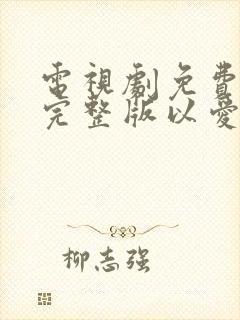 電視劇免費
完整版以愛
柳志强